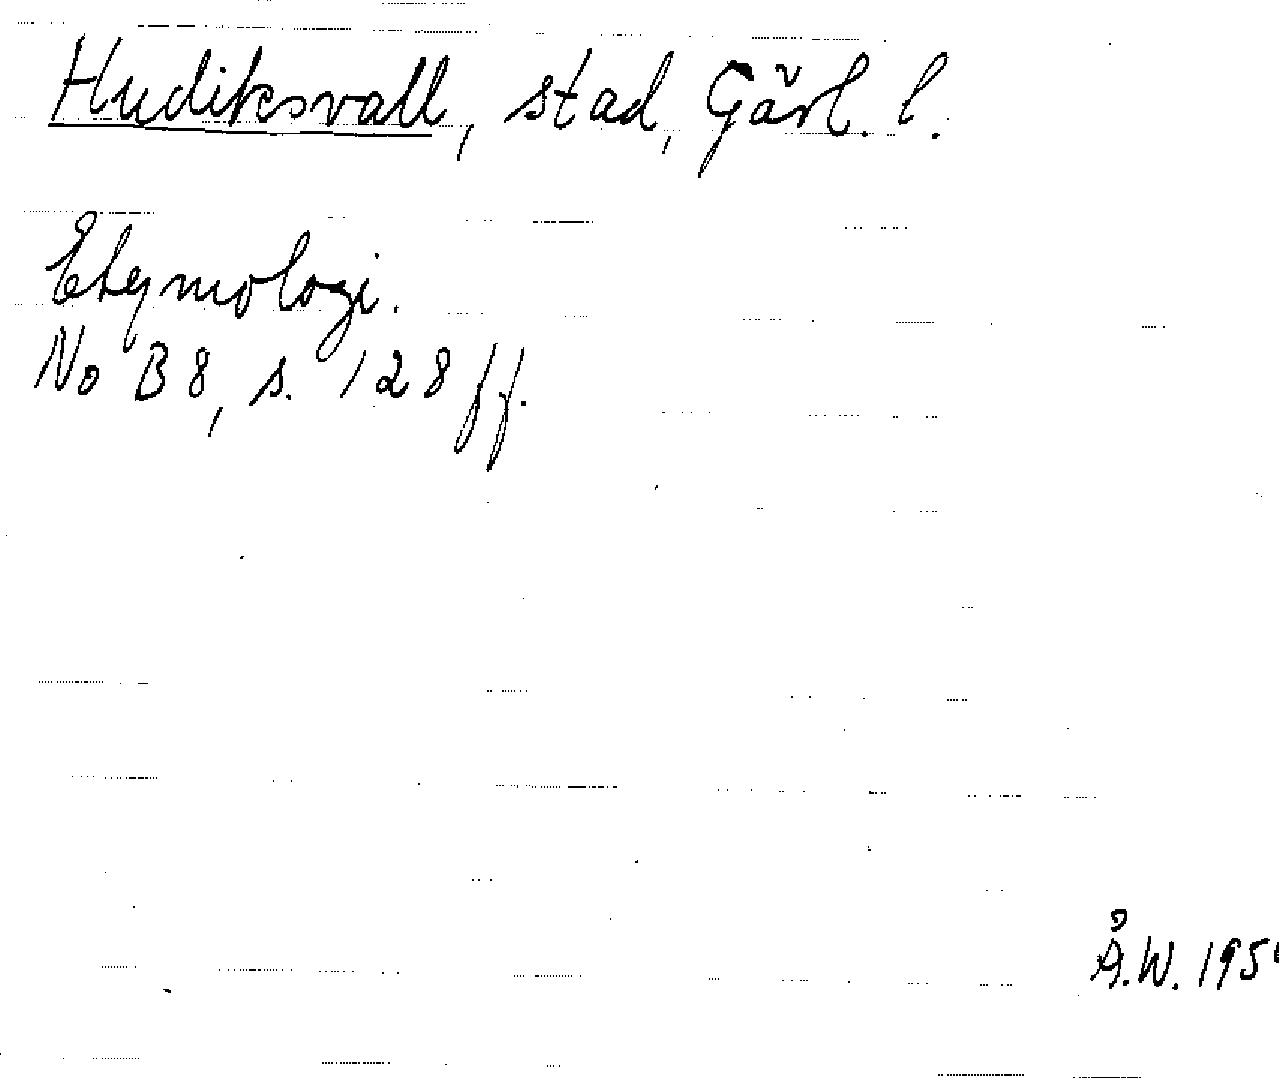 Hudiksvall, stad, Gävl. l.
Etymologi.
No B 8, s. 128 ff.
Å.W. 195